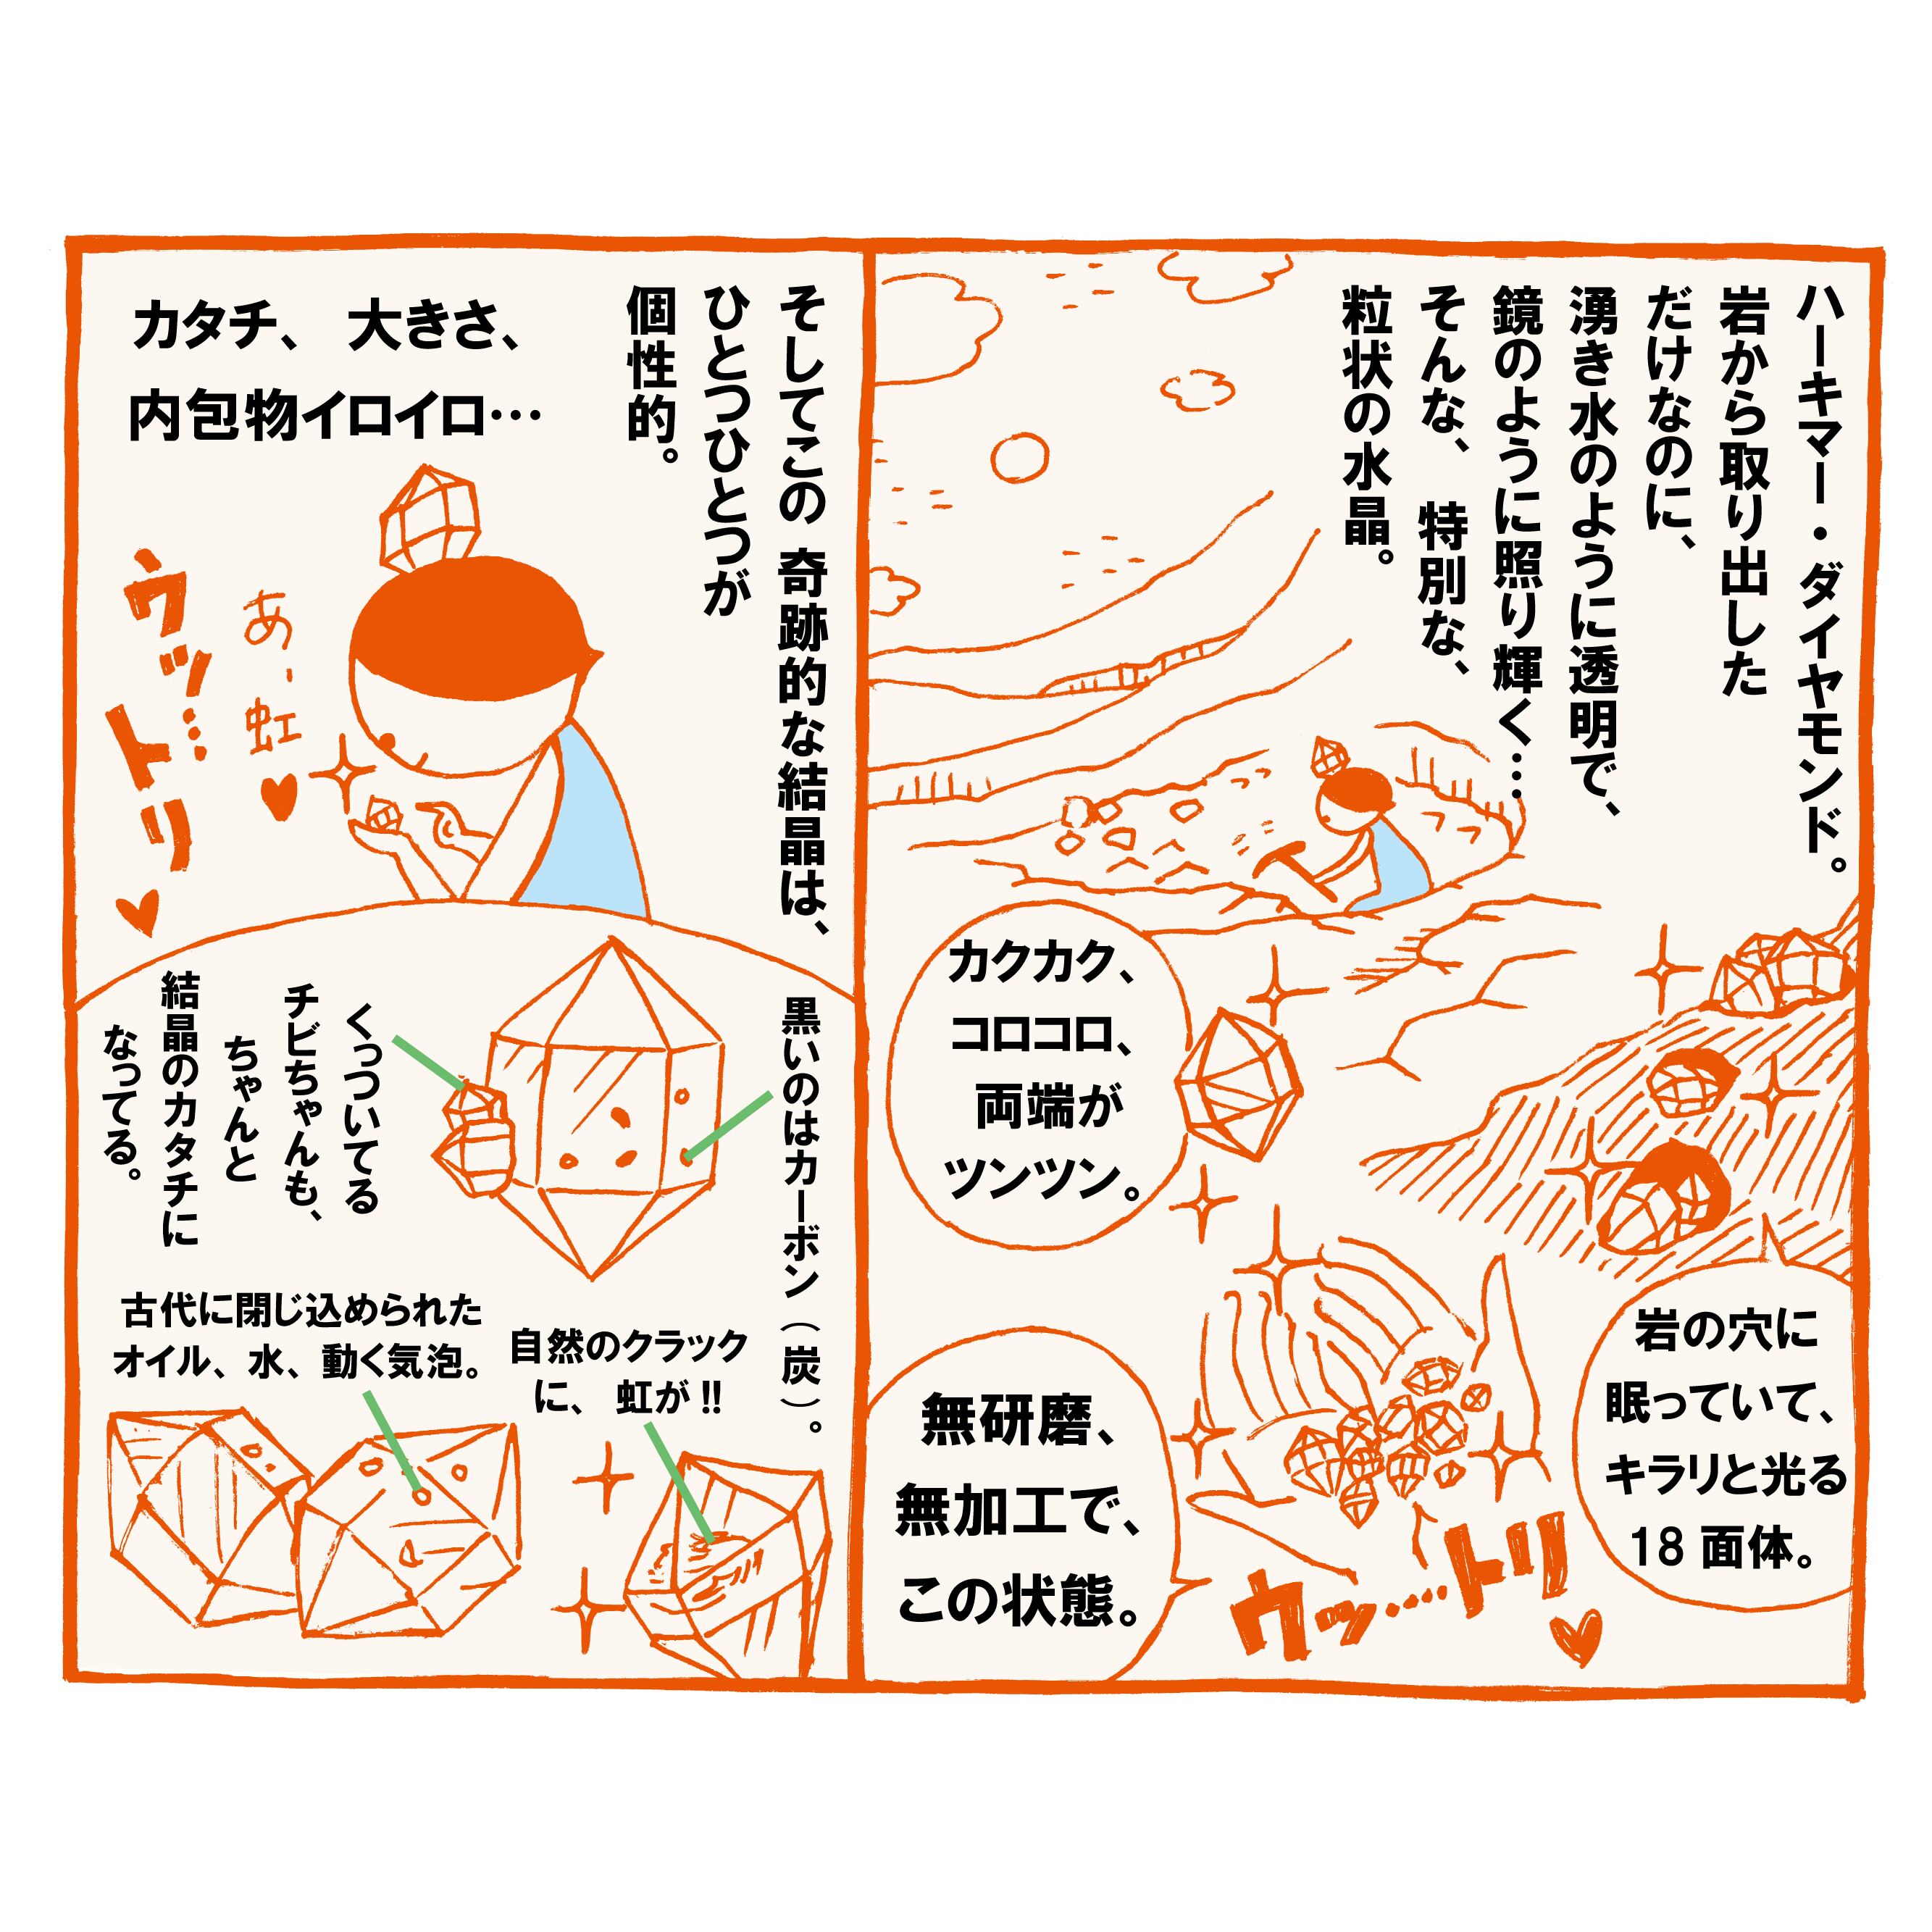 ハーキマー・ダイヤモンド。
岩から取り出した
だけなのに、
湧き水のように透明で、
鏡のように照り輝く…
そんな、特別な、
粒状の水晶。
カクカク、
コロコロ、
両端が
ツンツン。
岩の穴に
眠っていて、
キラリと光る
18面体。
無研磨、
無加工で、
この状態。
ウッ…‥トリ♥
そしてこの 奇跡的な結晶は、
ひとつひとつが
個性的。
カタチ、 大きさ、
内包物イロイロ…
あ、虹♥
ウッ…トリ♥
黒いのはカーボン（炭）。
くっついてる
チビちゃんも、
ちゃんと
結晶のカタチに
なってる。
古代に閉じ込められた
オイル、水、動く気泡。
自然のクラック
に、 虹が!!